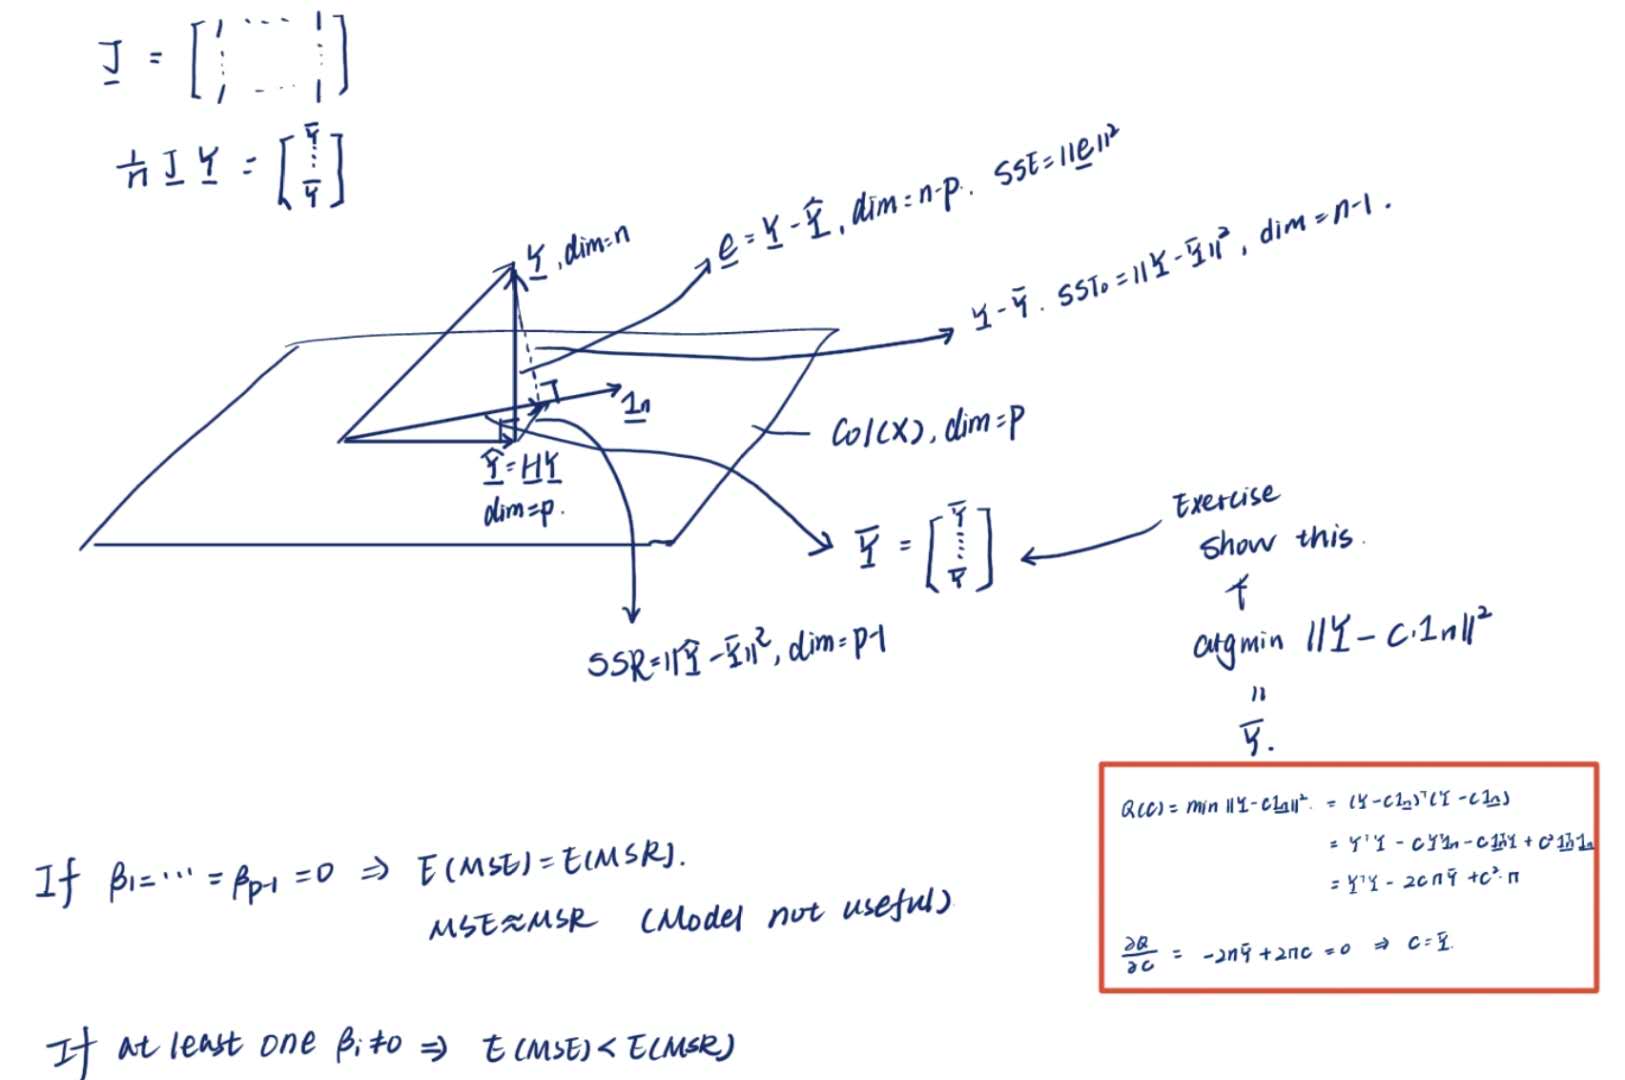 J = [1 ... 1 ⋮ ⋮ 1 ... 1]
1/n J Y = [Ȳ ⋮ Ȳ]
Y, dim=n
e = Y - Ŷ, dim = n-p. SSE = ||e||²
Y - Ȳ. SSTo = ||Y - Ȳ||², dim = n-1.
1n
Col(X), dim=p
Ŷ = HY
dim=p.
Ȳ = [Ȳ ⋮ Ȳ]
Exercise
show this.
↑
argmin ||Y - c·1n||²
"
Ȳ.
SSR = ||Ŷ - Ȳ||², dim = p-1
Q(c) = min ||Y - c1n||² = (Y - c1n)ᵀ(Y - c1n)
= YᵀY - cYᵀ1n - c1nᵀY + c²1nᵀ1n
= YᵀY - 2cnȲ + c²·n
∂Q/∂c = -2nȲ + 2nc = 0 ⇒ c = Ȳ.
If β1 = ... = βp-1 = 0 ⇒ E(MSE) = E(MSR).
MSE ≈ MSR (Model not useful)
If at least one βi ≠ 0 ⇒ E(MSE) < E(MSR)